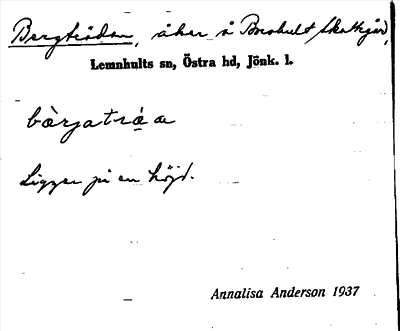 Bergträdan, åker å Brohult Skattegård,
Lemnhults sn, Östra hd, Jönk. l.
bàrjatrá̤a
Ligger på en höjd.
Annalisa Anderson 1937